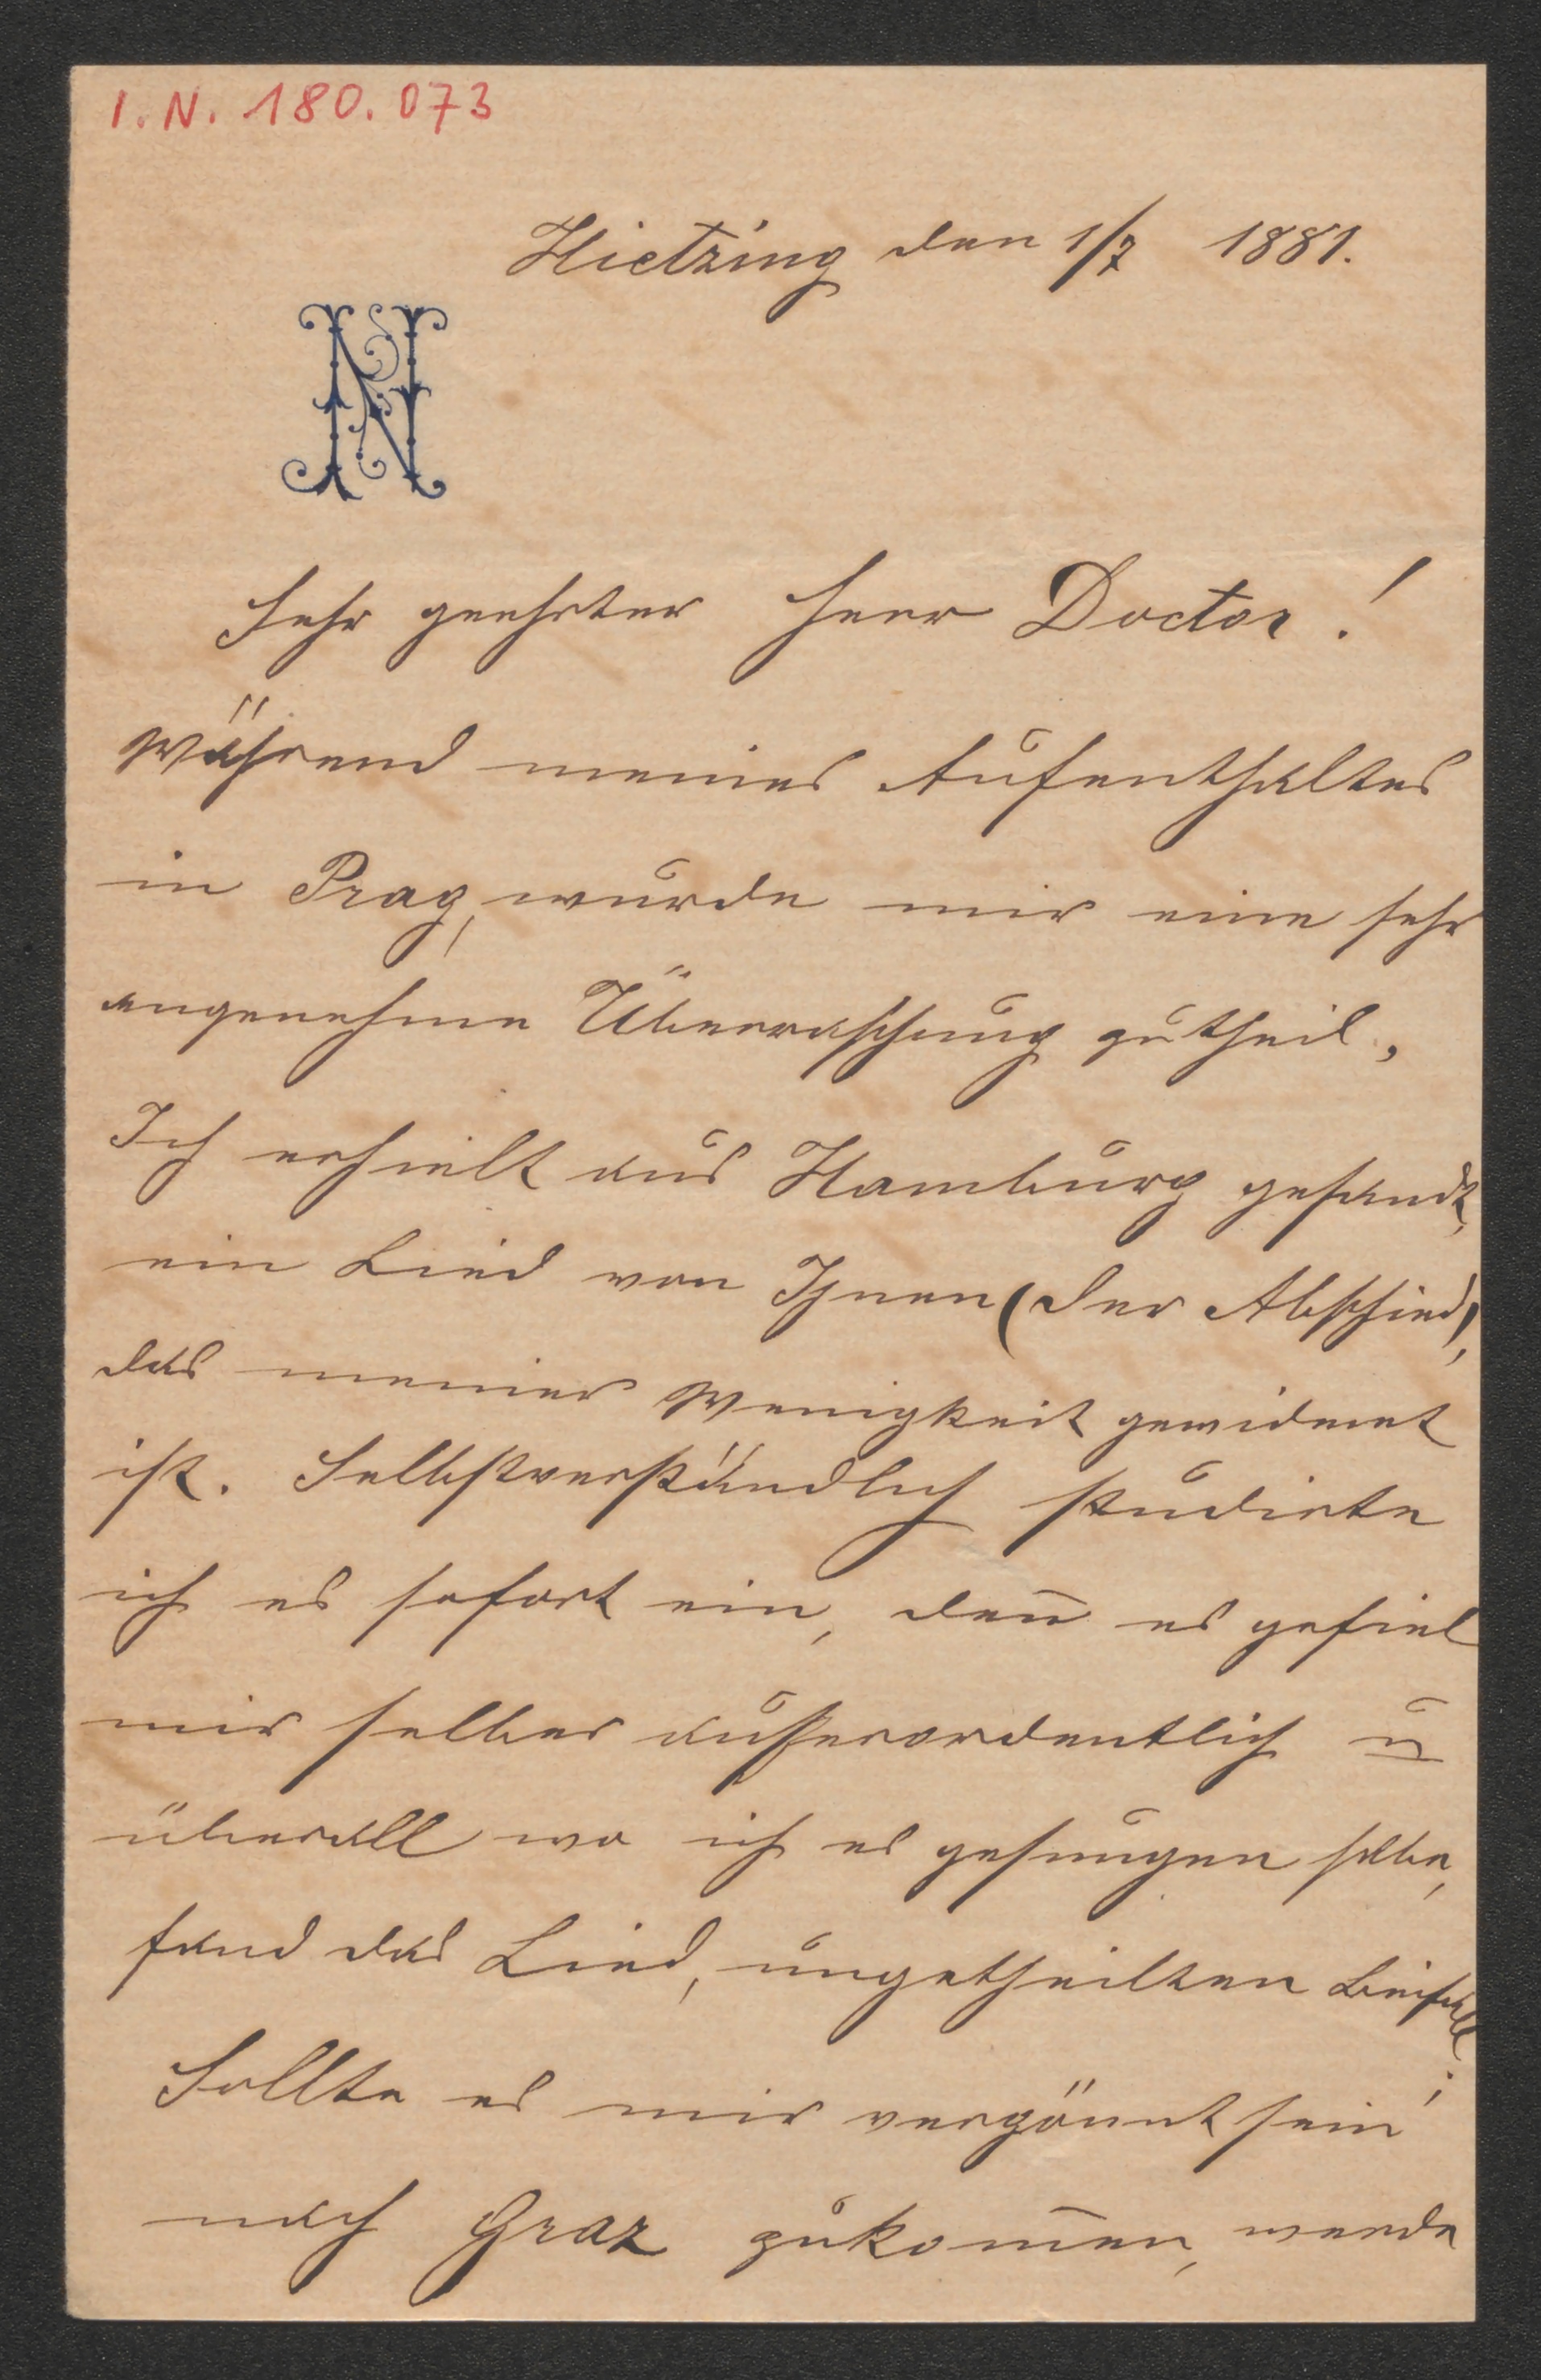 I. N. 180.073
Hietzing den 1/7 1881.
N
Sehr geehrter Herr Doctor!
Während meines Aufenthaltes
in Prag, wurde mir eine sehr
angenehme Überraschung zutheil,
Ich erhielt aus Hamburg gesandt,
ein Lied von Ihnen (Der Abschied),
das meiner Wenigkeit gewidmet
ist. Selbstverständlich studirte
ich es sofort ein, den̄ es gefiel
mir selber außerordentlich u
überall wo ich es gesungen habe,
fand das Lied, ungetheilten Beifall;
Sollte es mir vergönnt sein
nach Graz zukom̄en, werde